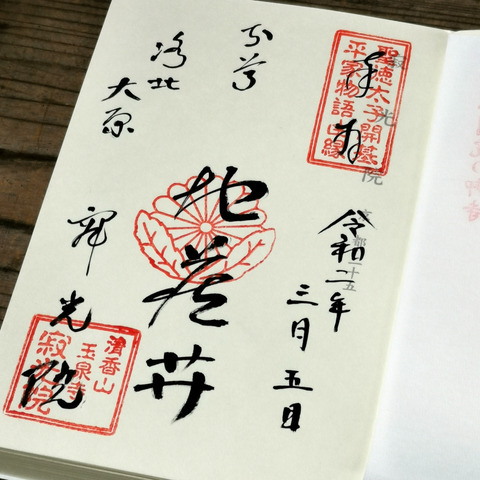 聖徳太子開基
平家物語由縁
奉拝
令和二年
三月五日
地蔵𦬇
洛北
大原
寂光院
清香山
玉泉寺
寂光院